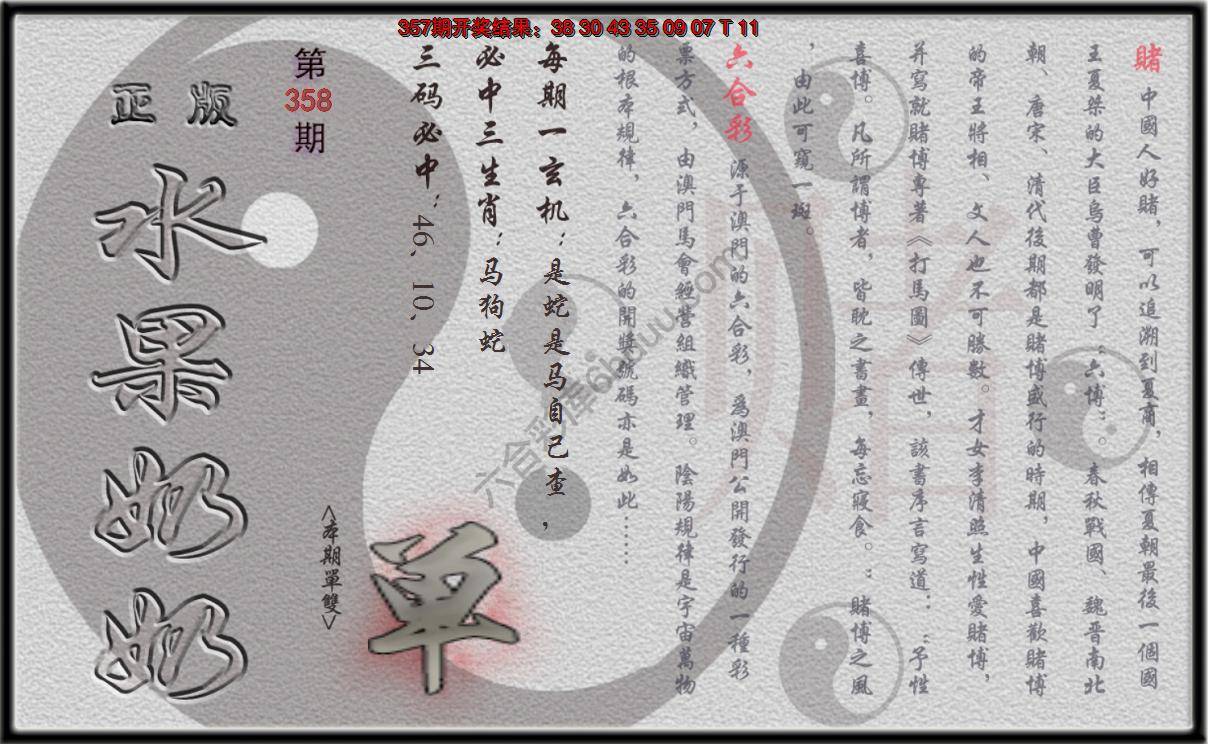 357期开奖结果：38 30 43 35 09 07 T 11
賭 中國人好賭，可以追溯到夏商，相傳夏朝最後一個國
王夏桀的大臣烏曹發明了“六博”。春秋戰國、魏晋南北
朝、唐宋、清代後期都是賭博盛行的時期，中國喜歡賭博
的帝王將相、文人也不可勝數。才女李清照生性愛賭博，
并寫就賭博專著《打馬圖》傳世，該書序言寫道：“予性
喜博。凡所謂博者，皆耽之書畫，每忘寢食。：賭博之風
，由此可窺一斑。
六合彩 源于澳門的六合彩，爲澳門公開發行的一種彩
票方式，由澳門馬會經營組織管理。陰陽規律是宇宙萬物
的根本規律，六合彩的開獎號碼亦是如此……
每期一玄机：是蛇是马自己查，
必中三生肖：马狗蛇
三码必中：46、10、34
第
358
期
正版
水果奶奶
<本期單雙>
单
赌
六合彩库6hduu.com